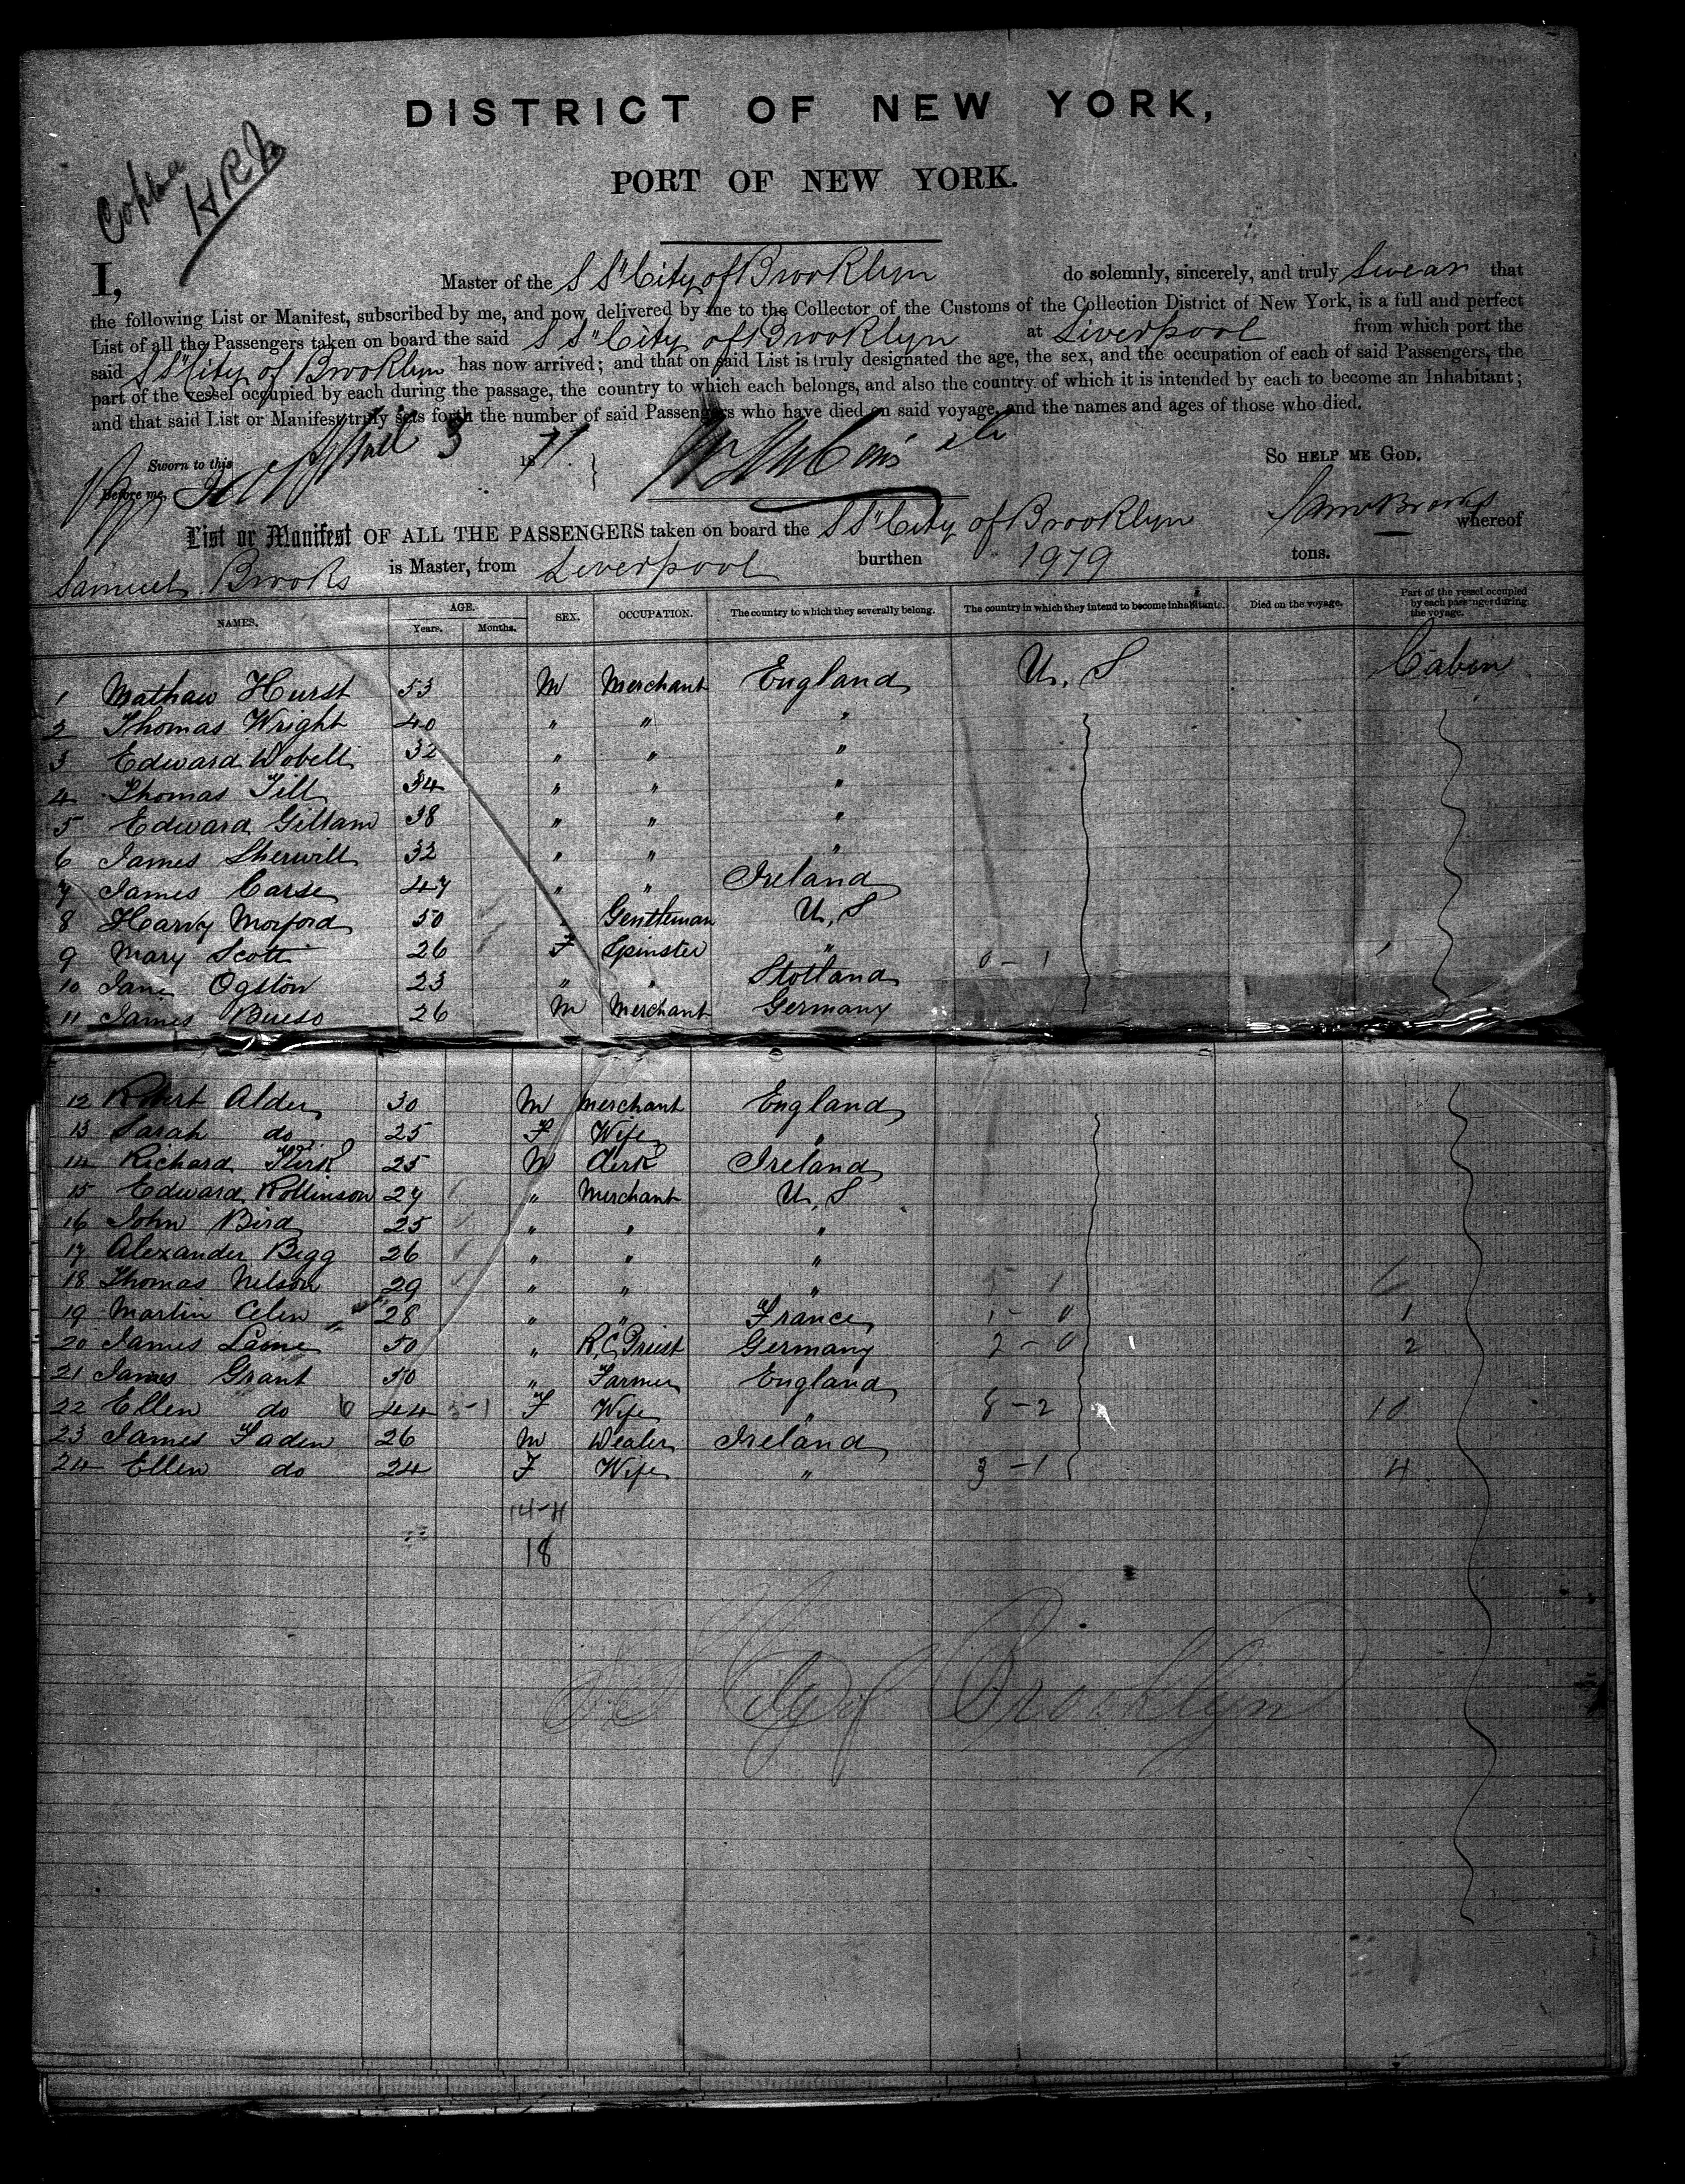 DISTRICT OF NEW YORK,
PORT OF NEW YORK.
I, Master of the S S "City of Brooklyn do solemnly, sincerely, and truly Swear that
the following List or Manifest, subscribed by me, and now delivered by me to the Collector of the Customs of the Collection District of New York, is a full and perfect
List of all the Passengers taken on board the said S S "City of Brooklyn at Liverpool from which port the
said S S "City of Brooklyn has now arrived; and that on said List is truly designated the age, the sex, and the occupation of each of said Passengers, the
part of the vessel occupied by each during the passage, the country to which each belongs, and also the country of which it is intended by each to become an Inhabitant;
and that said List or Manifest truly sets forth the number of said Passengers who have died on said voyage, and the names and ages of those who died.
Sworn to this April 3 1871. So HELP ME GOD.
Before me,
List or Manifest OF ALL THE PASSENGERS taken on board the S S "City of Brooklyn whereof
Samuel Brooks is Master, from Liverpool burthen 1979 tons.
NAMES. AGE. Years. Months. SEX. OCCUPATION. The country to which they severally belong. The country in which they intend to become inhabitants. Died on the voyage. Part of the vessel occupied by each passenger during the voyage.
1 Mathaw Hurst 53 M Merchant England U. S Cabin
2 Thomas Wright 40 " " "
3 Edward Wobell 32 " " "
4 Thomas Till 34 " " "
5 Edward Gillam 38 " " "
6 James Sherwill 32 " " "
7 James Carse 47 " " Ireland
8 Harvy Morford 50 " Gentleman U. S
9 Mary Scott 26 F Spinster " 0 - 1
10 Jane Ogston 23 " " Stotland
11 James Bueso 26 M Merchant Germany
12 Robert Alder 30 M Merchant England
13 Sarah do 25 F Wife "
14 Richard Kirk 25 M Clerk Ireland
15 Edward Rollinson 27 " Merchant U. S
16 John Bird 25 " " "
17 Alexander Begg 26 " " "
18 Thomas Nelson 29 " " "
19 Martin Celen 28 " " France 1 - 0 1
20 James Lame 50 " R. C. Priest Germany 2 - 0 2
21 James Grant 50 " Farmer England
22 Ellen do 6 44 3-1 F Wife " 8 - 2 10
23 James Faden 26 M Dealer Ireland
24 Ellen do 24 F Wife " 3 - 1 4
14-4
18
S S City of Brooklyn